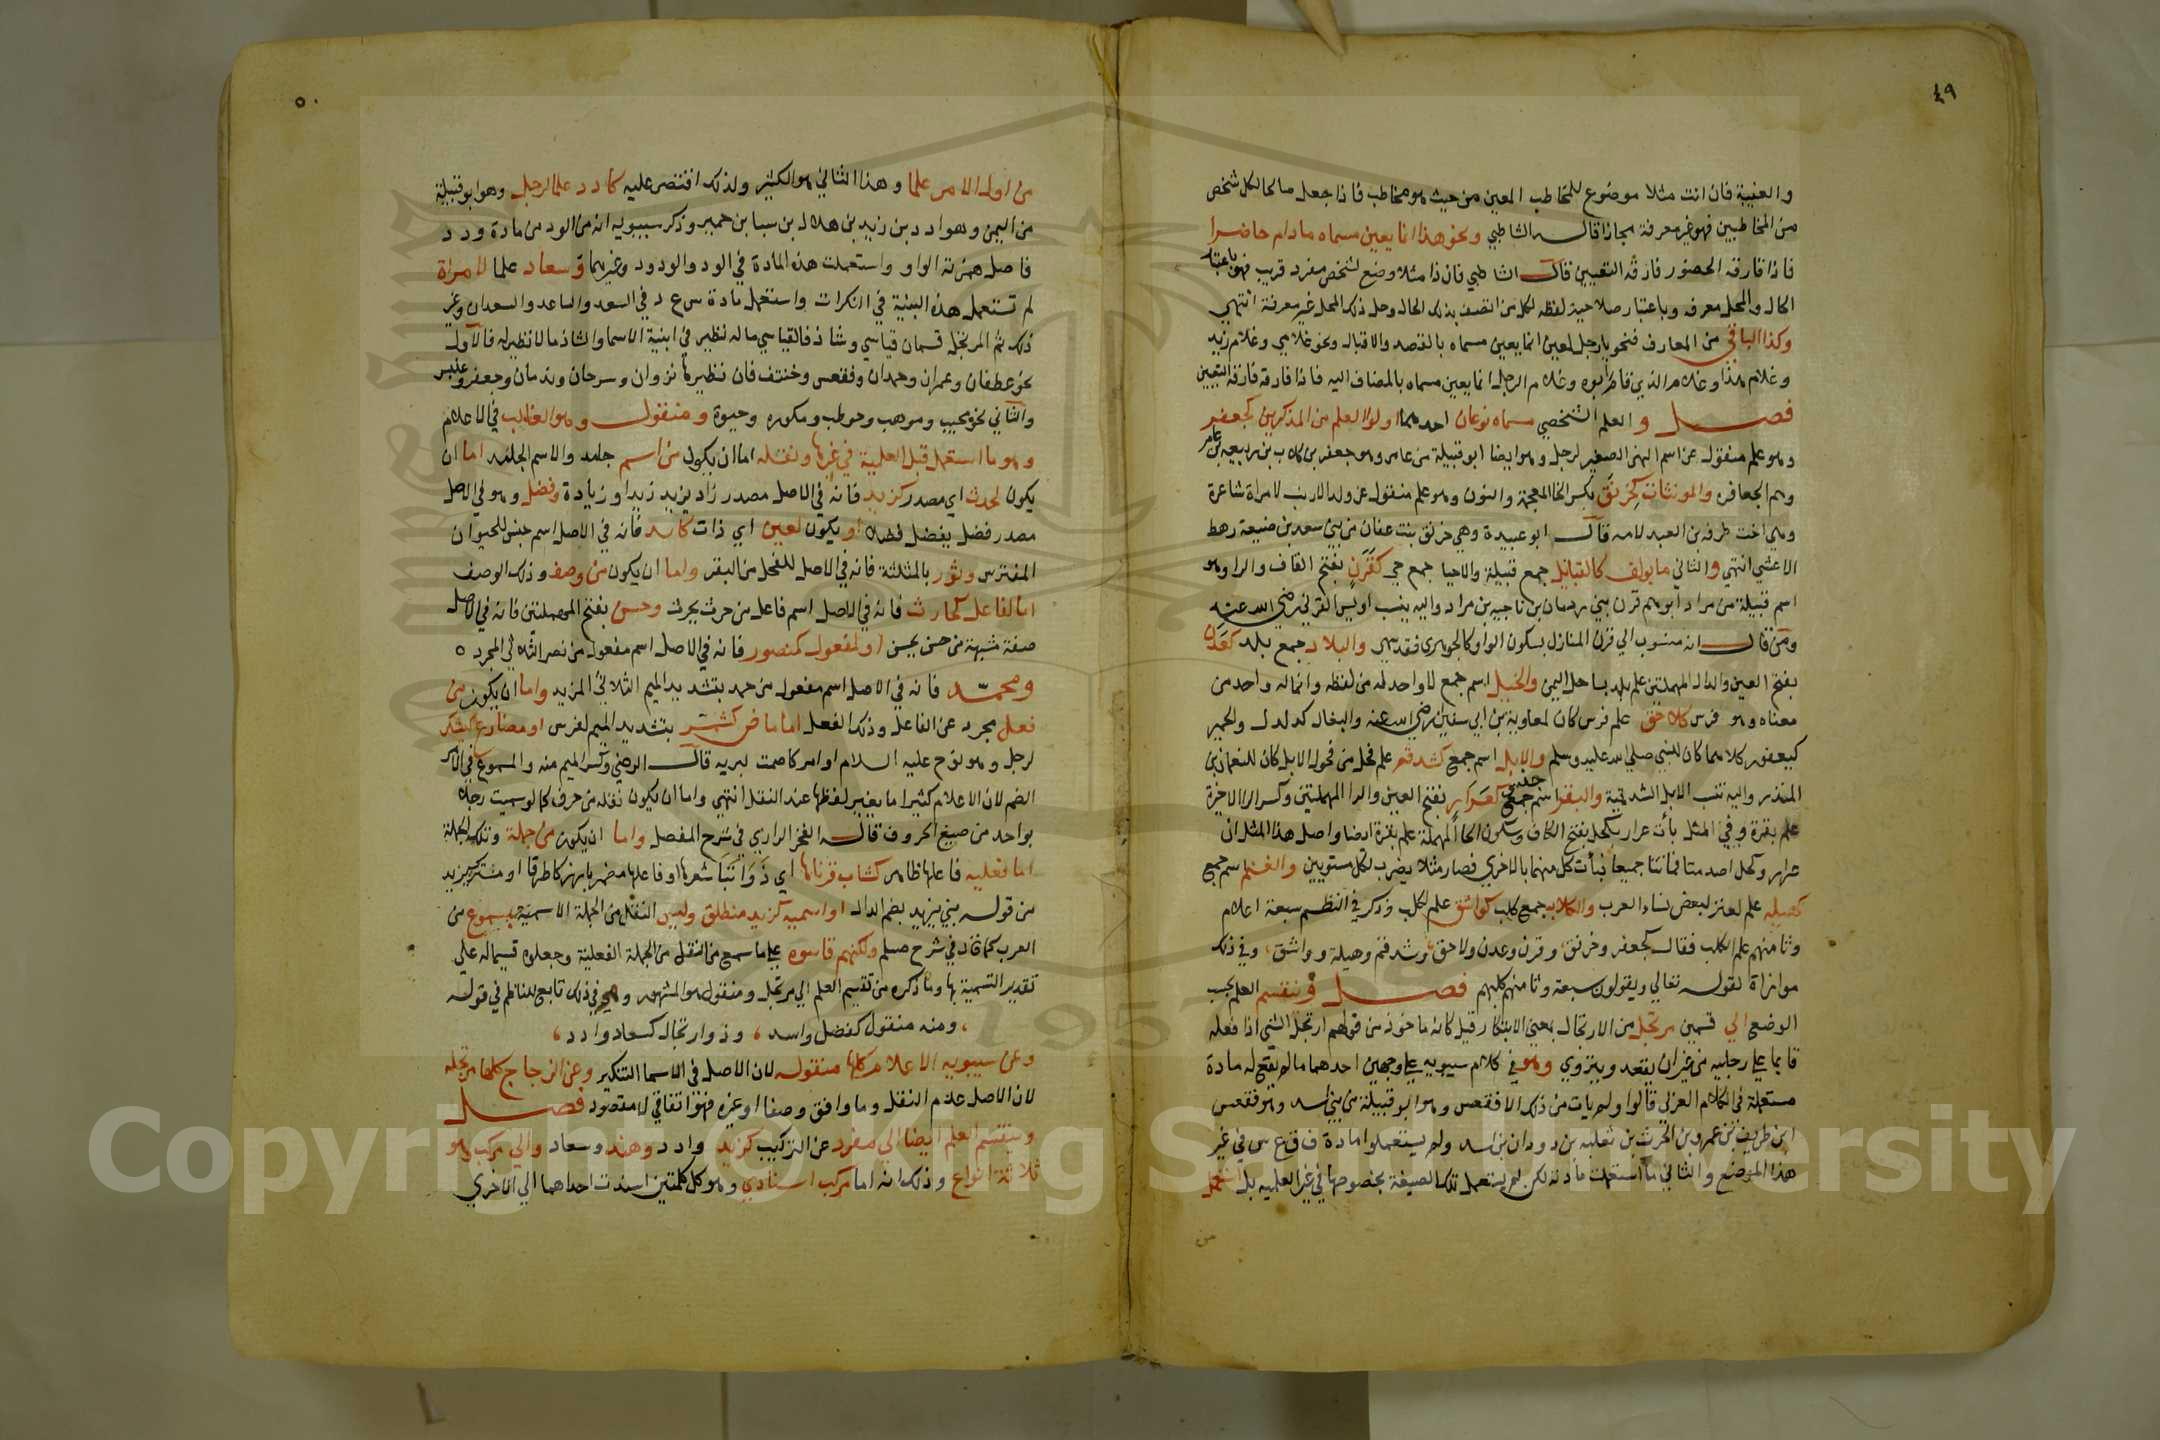 ٤٩
والغيبة فان انت مثلا موضوع للمخاطب المعين من حيث هو مخاطب فاذا جعل صالحا لكل شخص
من المخاطبين فهو غير معرفة مجازا قاله الشاطبي ونحو هذا انما يعين مسماه مادام حاضرا
فاذا فارقه الحضور فارقه التعيين قال الشاطبي فان ذا مثلا وضع لشخص مفرد قريب فهو باعتبار
الحال والمحل معرفه وباعتبار صلاحية لفظه لكل من اتصف بذلك الحال وحل ذلك المحل غير معرفة انتهي
وكذا الباقي من المعارف فنحو يا رجل لمعين انما يعين مسماه بالقصد والاقبال ونحو غلامي وغلام زيد
وغلام هذا وغلام الذي قام ابوه وغلام الرجل انما يعين مسماه بالمضاف اليه فاذا فارقه فارقه التعيين
فصل والعلم الشخصي مسماه نوعان احدهما اولوا العلم من المذكرين كجعفر
وهو علم منقول عن اسم النهر الصغير لرجل وهو ايضا ابو قبيلة من عامر وهو جعفر بن كلاب بن ربيعه بن عامر
وهم الجعافره والمونثات كخرنق بكسر الخا المعجمة والنون وهو علم منقول عن ولد الارنب لامراة شاعرة
وهي اخت طرفه بن العبد لامه قال ابو عبيدة وهي خرنق بنت عفان من بني سعد بن ضبيعة رهط
الاعشي انتهي والثاني ما يولف كالقبائل جمع قبيلة والاحيا جمع حي كقرن بفتح القاف والرا وهو
اسم قبيلة من مراد ابوهم قرن بن ردمان بن ناجيه بن مراد واليه ينسب اويس القرني رضي الله عنه
ومن قال انه منسوب الي قرن المنازل بسكون الواو كالجوهري فقد سهي والبلاد جمع بلد كعدن
بفتح العين والدال المهملتين علم بلد بساحل اليمن والخيل اسم جمع لا واحد له من لفظه وانما له واحد من
معناه وهو فرس كلاحق علم فرس كان لمعاوية بن ابي سفين رضي الله عنه والبغال كدلدل والحمير
كيعفور كلاهما كان للنبي صلي الله عليه وسلم والابل اسم جمع كشدقم علم فحل من فحول الابل كان للنعمان بن
المنذر واليه تنسب الابل الشدقمية والبقر اسم جنس جمعي كعرار بفتح العين والرا المهملتين وكسر الرا الاخرة
علم بقرة وفي المثل بأت عرار بكحل بفتح الكاف وسكون الحا المهملة علم بقرة ايضا واصل هذا المثل ان
عرار وكحل اصدمتا فماتتا جميعا فبأت كل منهما بالاخري فصار مثلا يضرب لكل مستويين والغنم اسم جمع
كهيله علم لعنز لبعض نساء العرب والكلاب جمع كلب كواشق علم لكلب وذكر في النظم سبعة اعلام
وثامنهم علم الكلب فقال كجعفر وخرنق، وقرن وعدن ولاحق، وشدقم وهيلة وواشق، وفي ذلك
موازاة لقوله تعالي ويقولون سبعة وثامنهم كلبهم فصل وينقسم العلم بحسب
الوضع الي قسمين مرتجل من الارتجال بمعني الابتكار قيل كانه ماخوذ من قولهم ارتجل الشي اذا فعله
قايما علي رجليه من غير ان يقعد ويتروي وهو في كلام سيبويه علي وجهين احدهما ما لم يقع له مادة
مستعملة في الكلام العربي قالوا ولم يات من ذلك الا فقعس وهو ابو قبيلة من بني أسد وهو فقعس
ابن طريف بن عمرو بن الحرث بن ثعلبه بن دودان بن اسد ولم يستعملوا مادة ف ق ع س في غير
هذا الموضع والثاني ما استعملت مادته لكن لم يستعمل تلك الصيغة بخصوصها في غير العلميه بل استعمل
من
٥٠
من اول الامر علما وهذا الثاني هو الكثير ولذلك اقتصر عليه كادد علما لرجل وهو ابو قبيلة
من اليمن وهو ادد بن زيد بن هلال بن سبا بن حمير وذكر سيبويه انه من الود من مادة ودد
فاصل همزته الواو واستعملت هذه المادة في الود والودود وغيرهما وسعاد علما لامراة
لم تستعمل هذه البنية في النكرات واستعمل مادة س ع د في السعد والساعد والسعدان وغير
ذلك ثم المرتجل قسمان قياسي وشاذ فالقياسي ما له نظير في ابنية الاسما والشاذ ما لا نظير له فالاول
نحو غطفان وعمران وحمدان وفقعس وخنتف فان نظيرها نزوان وسرحان وندمان وجعفر وعنبس
والثاني نحو محبب وموهب وحوطب ومكوره وحيوة ومنقول وهو الغالب في الاعلام
وهو ما استعمل قبل العلمية في غيرها ونقله اما ان يكون من اسم جامد والاسم الجامد اما ان
يكون لحدث اي مصدر كزيد فانه في الاصل مصدر زاد يزيد زيدا وزيادة وفضل وهو في الاصل
مصدر فضل يفضل فضلا او يكون لعين اي ذات كاسد فانه في الاصل اسم جنس للحيوان
المفترس وثور بالمثلثة فانه في الاصل للفحل من البقر واما ان يكون من وصف وذلك الوصف
اما لفاعل كحارث فانه في الاصل اسم فاعل من حرث يحرث وحسن بفتح المهملتين فانه في الاصل
صفة مشبهة من حسن يحسن او لمفعول كمنصور فانه في الاصل اسم مفعول من نصر الثلاثي المجرد ه
ومحمد فانه في الاصل اسم مفعول من حمد بتشديد الميم الثلاثي المزيد واما ان يكون من
فعل مجرد عن الفاعل وذلك الفعل اما ماض كشمر بتشديد الميم لفرس او مضارع كيشكر
لرجل وهو نوح عليه السلام او امر كاصمت لبريه قال الرضي وكسر الميم منه والمسموع في الامر
الضم لان الاعلام كثيرا ما يغيير لفظها عند النقل انتهي واما ان يكون نقله من حرف كما لو سميت رجلا
بواحد من صيغ الحروف قاله الفخر الرازي في شرح المفصل واما ان يكون من جملة وتلك الجملة
اما فعليه فاعلها ظاهر كشاب قرناها اي ذوائبا شعرها او فاعلها مضمر بارز كاطرقا او مستتر كيزيد
من قوله بني يزيد بضم الدال او اسميه كزيد منطلق وليس النقل من الجملة الاسميه بمسموع من
العرب كما قال في شرح سلم ولكنهم قاسوه علي ما سمع من النقل من الجملة الفعلية وجعلوه قسيما له علي
تقدير التسمية بها وما ذكره من تقسيم العلم الي مرتجل ومنقول هو المشهور وهو في ذلك تابع للناظم في قوله
، ومنه منقول كفضل واسد ، وذو ارتجال كسعاد وادد ،
وعن سيبويه الاعلام كلها منقوله لان الاصل في الاسما التنكير وعن الزجاج كلها مرتجله
لان الاصل عدم النقل وما وافق وصفا او غيره فهو اتفاقي لا مقصود فصل
وينقسم العلم ايضا الي مفرد عن التركيب كزيد وادد وهند وسعاد والي مركب وهو
ثلاثة انواع وذلك انه اما مركب اسنادي وهو كل كلمتين اسندت احداهما الي الاخري
Copyright © King Saud University
1957